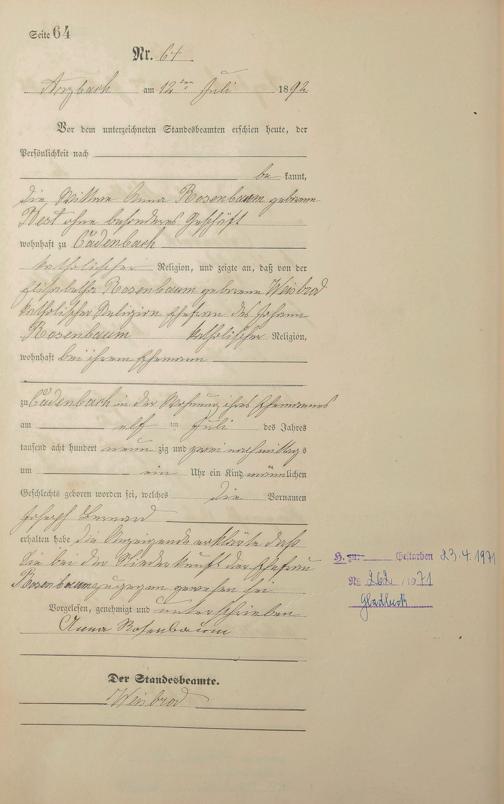 Seite 64
Nr. 64.
Arzbach am 12ten Juli 1892
Vor dem unterzeichneten Standesbeamten erschien heute, der
Persönlichkeit nach
be kannt,
die Wittwe Anna Rosenbaum geborene
West ohne besonderes Geschäft
wohnhaft zu Cadenbach
katholischer Religion, und zeigte an, daß von der
Elisabetha Rosenbaum geborene Weisbrod
katholischer Religion Ehefrau des Johann
Rosenbaum katholischer Religion,
wohnhaft bei ihrem Ehemann
zu Cadenbach in der Wohnung ihres Ehemannes
am elf ten Juli des Jahres
tausend acht hundert neun zig und zwei nachmittags
um ein Uhr ein Kind männlichen
Geschlechts geboren worden sei, welches die Vornamen
Joseph Bernard
erhalten habe die Anzeigende erklärte daß
sie bei der Niederkunft der Ehefrau
Rosenbaum zugegen gewesen sei
Vorgelesen, genehmigt und unterschrieben
Anna Rosenbaum
Der Standesbeamte.
Weisbrod
Gestorben 23.4.1971
Nr. 262/1971
Gladbeck